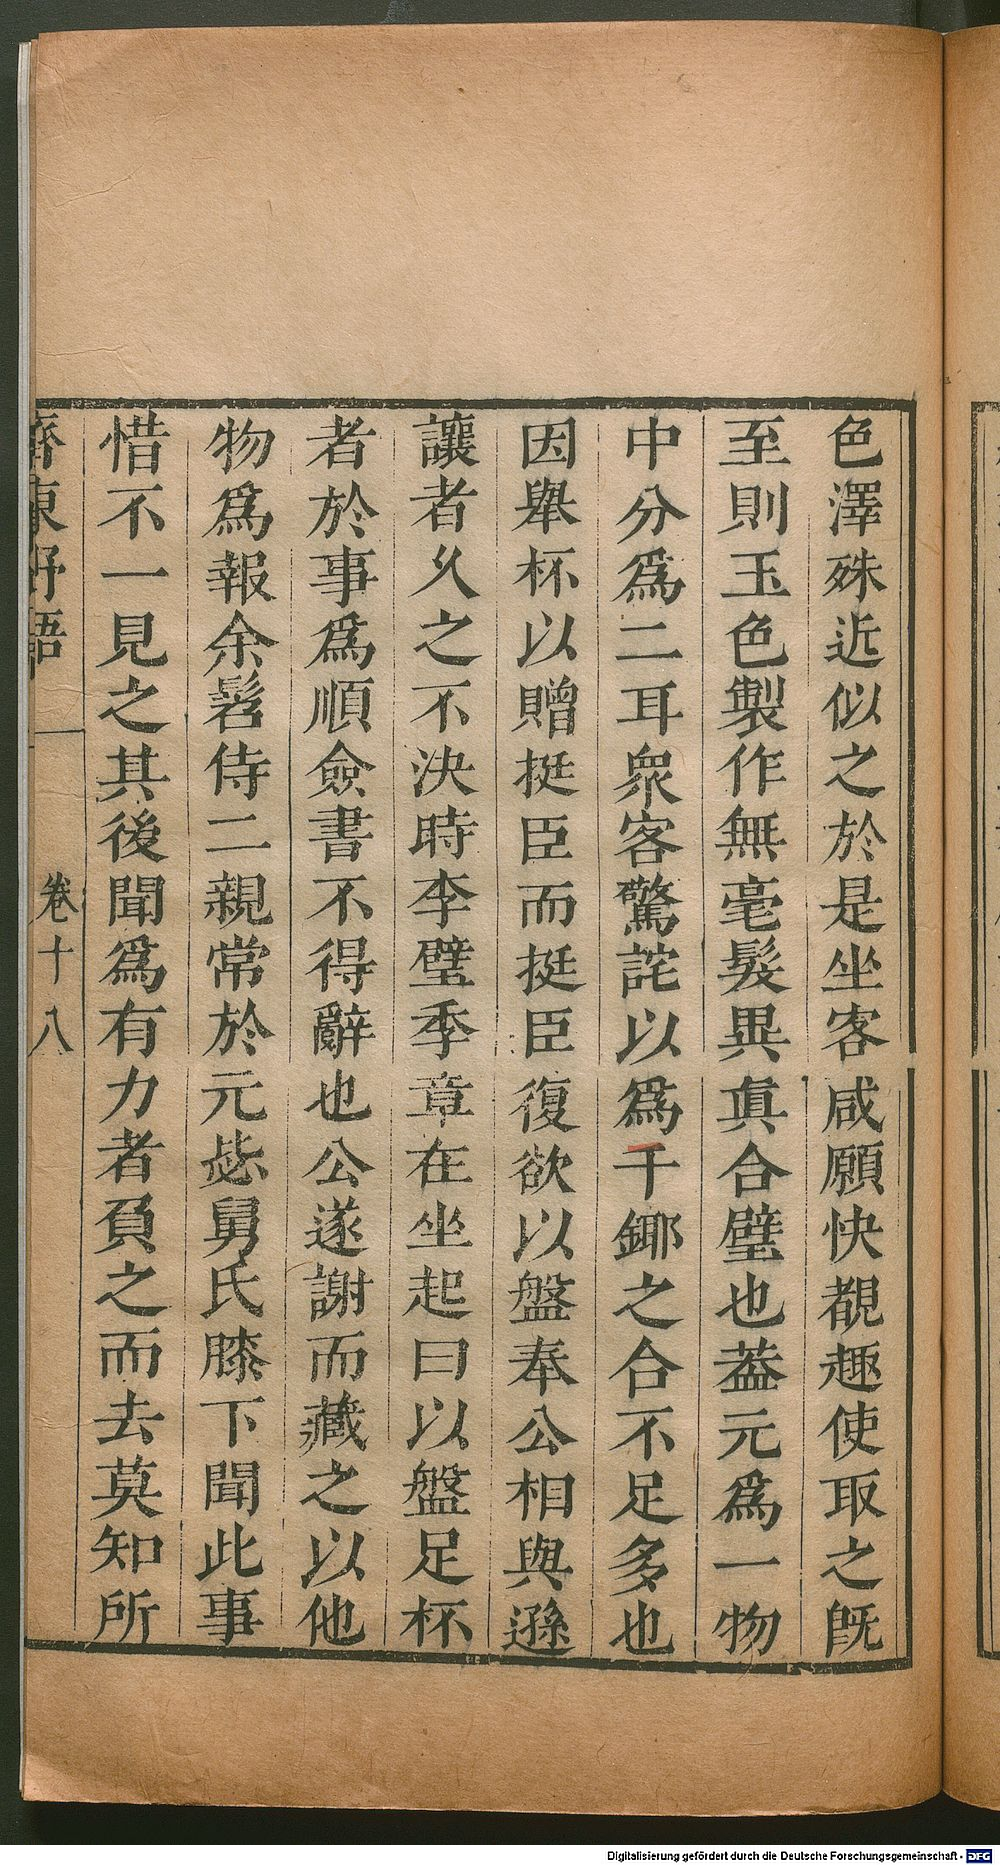 色澤殊近似之於是坐客咸願快覩趣使取之既
至則玉色製作無毫髮異眞合璧也葢元爲一物
中分爲二耳衆客驚詫以爲千鎁之合不足多也
因舉杯以贈挺臣而挺臣復欲以盤奉公相與遜
讓者久之不決時李璧季章在坐起曰以盤足杯
者於事爲順僉書不得辭也公遂謝而藏之以他
物爲報余髫侍二親常於元毖舅氏膝下聞此事
惜不一見之其後聞爲有力者負之而去莫知所
齊東野語
卷十八
Digitalisierung gefördert durch die Deutsche Forschungsgemeinschaft - DFG